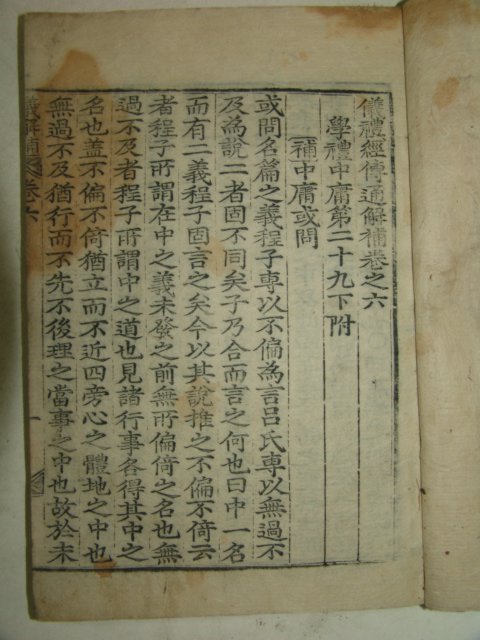 儀禮經傳通解補卷之六
學禮中庸第二十九下附
補中庸或問
或問名篇之義程子專以不偏爲言呂氏專以無過不
及爲說二者固不同矣子乃合而言之何也曰中一名
而有二義程子固言之矣今以其說推之不偏不倚云
者程子所謂在中之義未發之前無所偏倚之名也無
過不及者程子所謂中之道也見諸行事各得其中之
名也盖不偏不倚猶立而不近四旁心之體地之中也
無過不及猶行而不先不後理之當事之中也故於未
卷六
一